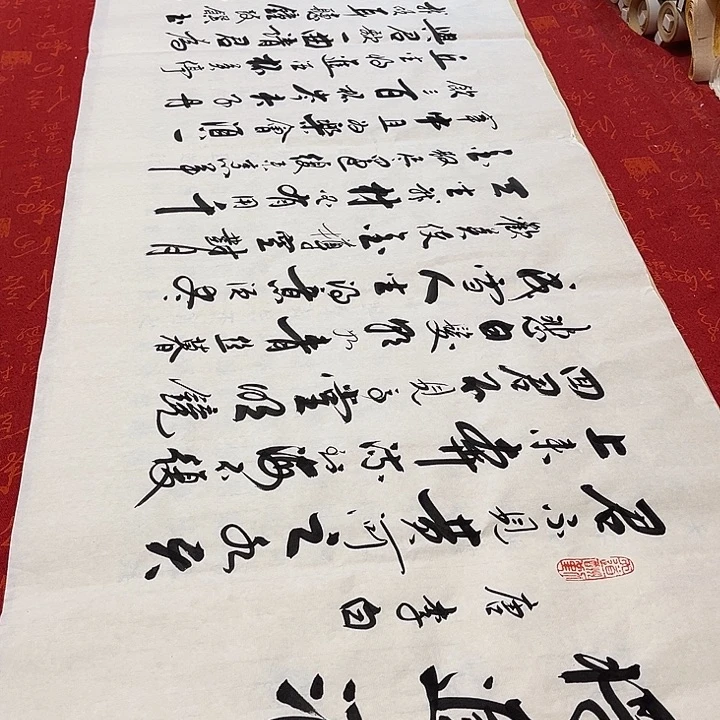 將進酒
唐李白
君不見黃河之水天
上来奔流到海不復
回君不見高堂明鏡
悲白髮朝如青丝暮
成雪人生得意須尽
歡莫使金樽空對月
天生我材必有用千
金散尽還復来烹羊
宰牛且為樂會須一
飲三百杯岑夫子丹
丘生將進酒杯莫停
與君歌一曲請君為
耳聽鐘鼓饌玉